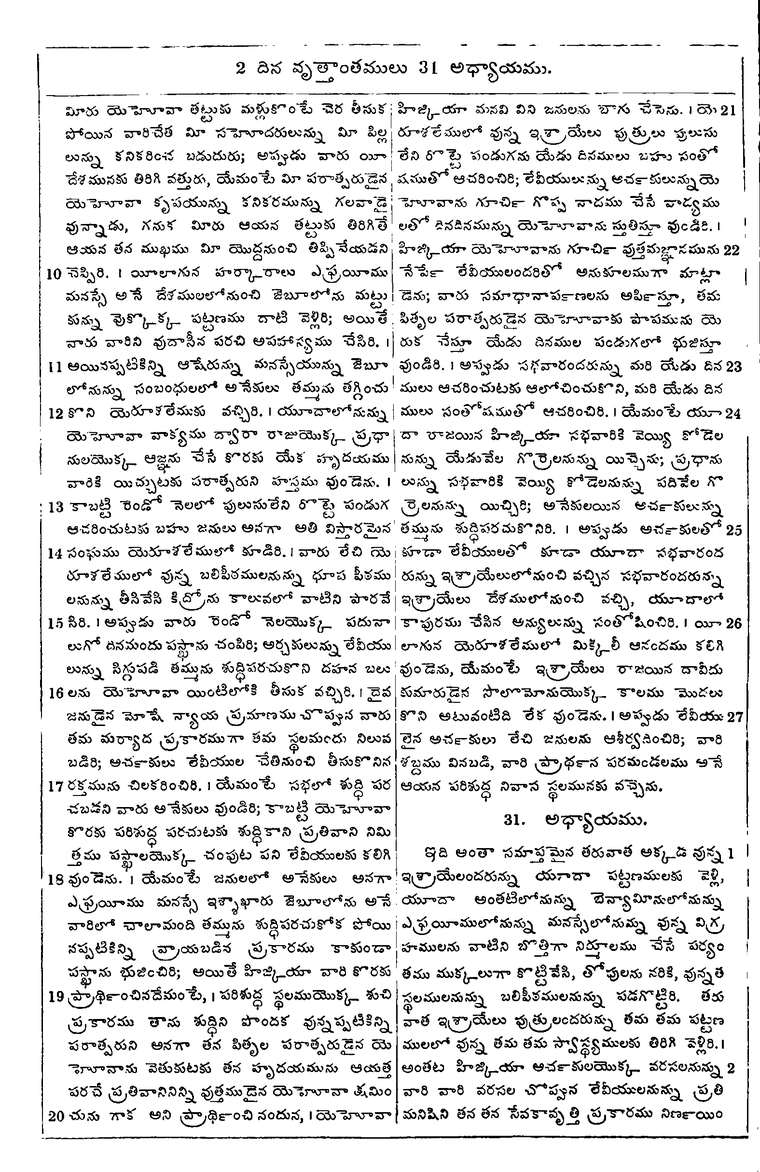 2 దిన వృత్తాంతములు 31 అధ్యాయము.
మీరు యెహోవా తట్టుకు మళ్లుకొంటే చెర తీసుక
పోయిన వారిచేత మీ సహోదరులున్ను మీ పిల్ల
లున్ను కనికరించ బడుదురు; అప్పుడు వారు యీ
దేశమునకు తిరిగి వత్తురు, యేమంటే మీ పరాత్పరుడైన
యెహోవా కృపయున్ను కనికరమున్ను గలవాడై
వున్నాడు, గనుక మీరు ఆయన తట్టుకు తిరిగితే
ఆయన తన ముఖము మీ యొద్దనుంచి తిప్పివేయడని
10 చెప్పిరి. । యీలాగున హర్కారాలు ఎఫ్రయీము
మనస్సే అనే దేశములలోనుంచి జెబూలోను మట్టు
కున్ను వొక్కొక్క పట్టణము దాటి వెళ్లిరి; అయితే
వారు వారిని వుదాసీన పరచి అపహాస్యము చేసిరి. ।
11 అయినప్పటికిన్ని ఆషేరున్ను మనస్సేయున్ను జెబూ
లోనున్ను సంబంధులలో అనేకులు తమ్మును తగ్గించు
12 కొని యెరూశలేముకు వచ్చిరి. । యూదాలోనున్ను
యెహోవా వాక్యము ద్వారా రాజుయొక్క ప్రధా
నులయొక్క ఆజ్ఞను చేసే కొరకు యేక హృదయము
వారికి యిచ్చుటకు పరాత్పరుని హస్తము వుండెను. ।
13 కాబట్టి రెండో నెలలో పులుసులేని రొట్టె పండుగ
ఆచరించుటకు బహు జనులు అనగా అతి విస్తారమైన
14 సంఘము యెరూశలేములో కూడిరి. । వారు లేచి యె
రూశలేములో వున్న బలిపీఠములనున్ను ధూప పీఠము
లనున్ను తీసివేసి కిద్రోను కాలువలో వాటిని పారవే
15 సిరి. । అప్పుడు వారు రెండో నెలయొక్క పదునా
లుగో దినమందు పస్ఖాను చంపిరి; అర్చకులున్ను లేవీయు
లున్ను సిగ్గుపడి తమ్మును శుద్ధిపరచుకొని దహన బలు
16 లను యెహోవా యింటిలోకి తీసుక వచ్చిరి. । దైవ
జనుడైన మోషే న్యాయ ప్రమాణము చొప్పున వారు
తమ మర్యాద ప్రకారముగా తమ స్థలమందు నిలువ
బడిరి; అర్చకులు లేవీయుల చేతినుంచి తీసుకొనిన
17 రక్తమును చిలకరించిరి. । యేమంటే సభలో శుద్ధి పర
చబడని వారు అనేకులు వుండిరి; కాబట్టి యెహోవా
కొరకు పరిశుద్ధ పరచుటకు శుద్ధికాని ప్రతివాని నిమి
త్తము పస్ఖాలయొక్క చంపుట పని లేవీయులకు కలిగి
18 వుండెను. । యేమంటే జనులలో అనేకులు అనగా
ఎఫ్రయీము మనస్సే ఇశ్శాఖారు జెబూలోను అనే
వారిలో చాలామంది తమ్మును శుద్ధిపరచుకోక పోయి
నప్పటికిన్ని వ్రాయబడిన ప్రకారము కాకుండా
పస్ఖాను భుజించిరి; అయితే హిజ్కియా వారి కొరకు
19 ప్రార్థించినదేమంటే, । పరిశుద్ధ స్థలముయొక్క శుచి
ప్రకారము తాను శుద్ధిని పొందక వున్నప్పటికిన్ని
పరాత్పరుని అనగా తన పితృల పరాత్పరుడైన యె
హోవాను వెతుకుటకు తన హృదయమును ఆయత్త
పరచే ప్రతివానినిన్ని వుత్తముడైన యెహోవా క్షమిం
20 చును గాక అని ప్రార్థించి నందున, । యెహోవా
హిజ్కియా మనవి విని జనులను బాగు చేసెను. । యె 21
రూశలేములో వున్న ఇశ్రాయేలు పుత్రులు పులుసు
లేని రొట్టె పండుగను యేడు దినములు బహు సంతో
షముతో ఆచరించిరి; లేవీయులున్ను అర్చకులున్ను యె
హోవాను గూర్చి గొప్ప నాదము చేసే వాద్యము
లతో దినదినమున్ను యెహోవాను స్తుతిస్తూ వుండిరి. ।
హిజ్కియా యెహోవాను గూర్చి వుత్తమజ్ఞానమును 22
నేర్పే లేవీయులందరితో అనుకూలముగా మాట్లా
డెను; వారు సమాధానార్పణలను అర్పిస్తూ, తమ
పితృల పరాత్పరుడైన యెహోవాకు పాపమును యె
రుక చేస్తూ యేడు దినముల పండుగలో భుజిస్తూ
వుండిరి. । అప్పుడు సభవారందరున్ను మరి యేడు దిన 23
ములు ఆచరించుటకు ఆలోచించుకొని, మరి యేడు దిన
ములు సంతోషముతో ఆచరించిరి. । యేమంటే యూ 24
దా రాజయిన హిజ్కియా సభవారికి వెయ్యి కోడెల
నున్ను యేడువేల గొర్రెలనున్ను యిచ్చెను; ప్రధాను
లున్ను సభవారికి వెయ్యి కోడెలనున్ను పదివేల గొ
ర్రెలనున్ను యిచ్చిరి; అనేకులయిన అర్చకులున్ను
తమ్మును శుద్ధిపరచుకొనిరి. । అప్పుడు అర్చకులతో 25
కూడా లేవీయులతో కూడా యూదా సభవారంద
రున్ను ఇశ్రాయేలులోనుంచి వచ్చిన సభవారందరున్ను
ఇశ్రాయేలు దేశములోనుంచి వచ్చి, యూదాలో
కాపురము చేసిన అన్యులున్ను సంతోషించిరి. । యీ 26
లాగున యెరూశలేములో మిక్కిలీ ఆనందము కలిగి
వుండెను, యేమంటే ఇశ్రాయేలు రాజయిన దావీదు
కుమారుడైన సొలొమోనుయొక్క కాలము మొదలు
కొని అటువంటిది లేక వుండెను. । అప్పుడు లేవీయు 27
లైన అర్చకులు లేచి జనులను ఆశీర్వదించిరి; వారి
శబ్దము వినబడి, వారి ప్రార్థన పరమండలము అనే
ఆయన పరిశుద్ధ నివాస స్థలమునకు వచ్చెను.
31. అధ్యాయము.
ఇది అంతా సమాప్తమైన తరువాత అక్కడ వున్న 1
ఇశ్రాయేలందరున్ను యూదా పట్టణములకు వెళ్లి,
యూదా అంతటిలోనున్ను బెన్యామీనులోనున్ను
ఎఫ్రయీములోనున్ను మనస్సేలోనున్ను వున్న విగ్ర
హములను వాటిని బొత్తిగా నిర్మూలము చేసే పర్యం
తము ముక్కలుగా కొట్టివేసి, తోపులను నరికి, వున్నత
స్థలములనున్ను బలిపీఠములనున్ను పడగొట్టిరి. తరు
వాత ఇశ్రాయేలు పుత్రులందరున్ను తమ తమ పట్టణ
ములలో వున్న తమ తమ స్వాస్థ్యములకు తిరిగి వెళ్లిరి. ।
అంతట హిజ్కియా అర్చకులయొక్క వరసలనున్ను 2
వారి వారి వరసల చొప్పున లేవీయులనున్ను ప్రతి
మనిషిని తన తన సేవకావృత్తి ప్రకారము నిర్ణయిం